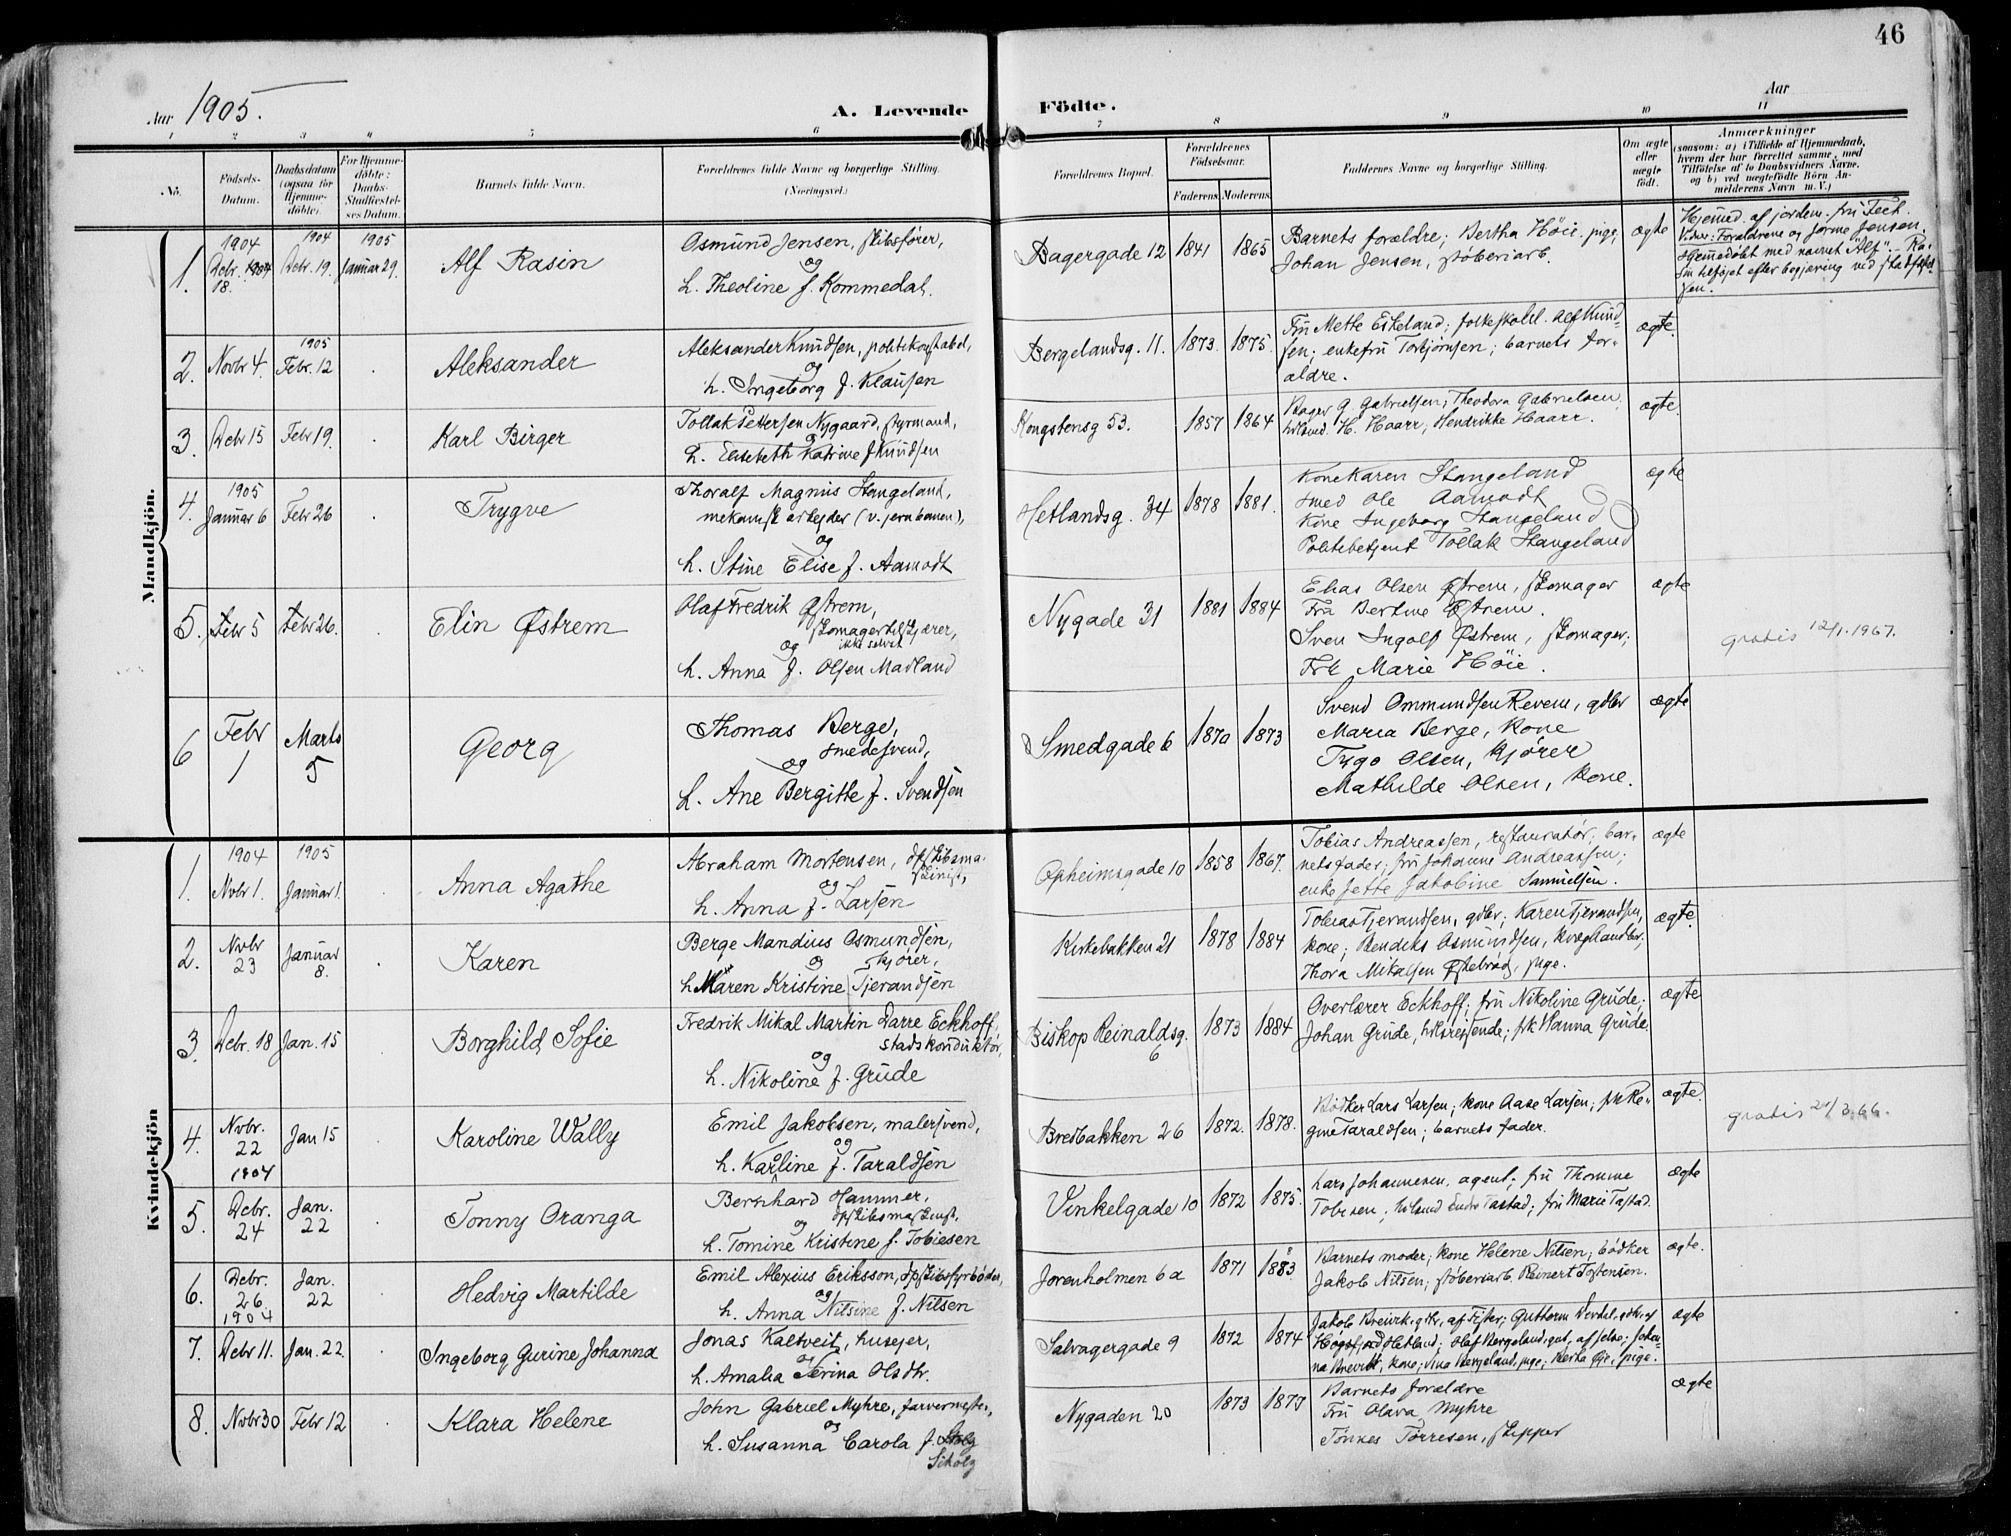 46
Aar 1905.
A. Levende Födte.
Aar
1 2 3 4 5 6 7 8 9 10 11
No.
Födsels-Datum.
Daabsdatum (ogsaa for Hjemme-döbte).
For Hjemme-döbte: Daabs-Stadfæstel-ses Datum.
Barnets fulde Navn.
Forældrenes fulde Navne og borgerlige Stilling. (Næringsvei.)
Forældrenes Bopæl.
Forældrenes Födselsaar.
Faderens. Moderens.
Faddernes Navne og borgerlige Stilling.
Om ægte eller uægte født.
Anmærkninger (saasom: a) i Tilfælde af Hjemmedaab, hvem der har forrettet samme, med Tilföielse af to Daabsvidners Navne, og b) ved uægtefödte Börn An-melderens Navn m. V.)
Mandkjön.
1. 1904 Debr. 1904 18. 1904 Debr. 19. 1905 Januar 29. Alf Rasin
Osmund Jensen, skibsfører,
og
h. Theoline f. Kommedal.
Bagergade 12 1841 1865
Barnets forældre; Bertha Høie, pige;
Johan Jensen, støberiarb.
ægte
Hjemmed. af jordem. fru Fech.
Vidner: Forældrene og Jørme Jensen.
Hjemmedøbt med navnet "Alf". Ra-
sin tilføjet efter begjæring ved stadfæstel-
sen.
2. Novbr 4. 1905 Febr. 12 Aleksander
Aleksander Knudsen, politikonstabel,
og
h. Ingeborg f. Klausen
Bergelandsg. 11. 1873. 1875.
Fru Mette Eskeland; folkeskolel. Alf Knud-
sen; enkefru Torbjørnsen; barnets for-
ældre.
ægte.
3. Debr 15 Febr 19. Karl Birger
Tollak Pettersen Nygaard, styrmand,
og
h. Elisebeth Katrine f. Knudsen
Kongstensg 53. 1857 1864
Bager G. Gabrielsen; Theodora Gabrielsen;
H. Haarr; Hendrikke Haarr.
ægte.
4. 1905 Januar 6 Febr 26 Trygve
Thoralf Magnus Stangeland,
mekanisk arbejder (v. jernbanen),
og
h. Stine Elise f. Aamodt
Hetlandsg. 34 1878 1881.
Kone Karen Stangeland
Smed Ole Aamodt
Kone Ingeborg Stangeland
Politibetjent Tollak Stangeland
ægte
5. Febr 5 Febr 26. Elin Østrem
Olaf Fredrik Østrem,
skomagertilskjærer,
ikke selvst
og
h. Anna f. Olsen Madland
Nygade 31 1881 1884
Elias Olsen Østrem, skomager
Fru Bertine Østrem.
Sven Ingolf Østrem, skomager;
Frk Marie Høie.
ægte
gratis 12/1.1967.
6 Febr 1 Marts 5 Georg
Thomas Berge,
smedesvend,
og
h. Ane Bergitte f. Svendsen
Smedgade 6 1870 1873
Svend Ommundsen Revem, gdbr
Maria Berge, kone
Tygo Olsen, kjører
Mathilde Olsen, kone.
ægte
Kvindekjön
1. 1904 Novbr 1. 1905 Januar 1. Anna Agathe
Abraham Mortensen, dpskibsma-
skinist,
og
h. Anna f. Larsen
Opheimsgade 10 1858 1867.
Tobias Andreassen, restauratør; bar-
nets fader; fru Johanne Andreassen;
enke Jette Jakobine Samuelsen.
ægte
2. Novbr 23 Januar 8. Karen
Berge Mandius Osmundsen,
kjører,
og
h. Maren Kristine Tjerandsen
Kirkebakken 21 1878 1884
Tobias Tjerandsen, gdbr; Karen Tjerandsen,
kone; Rendiks Osmundsen, kvæghandler;
Thora Mikalsen Østebrød, pige.
ægte.
3. Debr. 18 Jan. 15 Borghild Sofie
Fredrik Mikal Martin Darre Eckhoff,
stadskonduktør,
og
h. Nikoline f. Grude
Biskop Reinaldsg. 6 1873 1884
Overlærer Eckhoff; fru Nikoline Grude;
Johan Grude, hdlsrejsende; frk Hanna Grude.
ægte
4. Novbr. 22 1904 Jan 15 Karoline Wally
Emil Jakobsen, malersvend,
og
h. Karoline f. Taraldsen
Bredbakken 26 1872. 1878.
Bødker Lars Larsen; kone Aase Larsen; frk Re-
gine Taraldsen; barnets fader.
ægte.
gratis
5. Debr. 24 Jan. 22 Tonny Oranga
Bernhard Hammer,
dpskibsmaskinist,
og
h. Tomine Kristine f. Tobiesen
Vinkelgade 10 1872 1875.
Lars Johannesen, agent; fru Thomine
Tobiesen; hdlsmd Endre Tastad; fru Marie Tastad.
ægte
6. Debr. 26 1904 Jan. 22 Hedvig Martilde
Emil Alexius Eriksson, dpskibsfyrbøder,
og
h. Anna Nilsine f. Nilsen
Jorenholmen 6a 1871 1883
Barnets moder; kone Helene Nilsen; bødker
Jakob Nilsen; støberiarb. Reinert Tostensen.
ægte.
7. Debr 11. Jan. 22. Ingeborg Gurine Johanna
Jonas Kaltveit, husejer,
og
h. Amalia Serina Olsdtr.
Salvagergade 9 1872 1874
Jakob Breivik, gdbr, af Fister; Guttorm
Høgsfjord Hetland; Olaf Bergeland, gut, af Jelse; Johan-
na Breivik, kone; Vina Bergeland, pige; Berta Øje, pige.
ægte
8. Novbr 30 Febr 12 Klara Helene
John Gabriel Myhre, farvermester,
og
h. Susanna Carola f.
Scholz
Nygaden 20 1873 1877
Barnets forældre
Fru Olava Myhre
Tönnes Tørresen, skipper
ægte